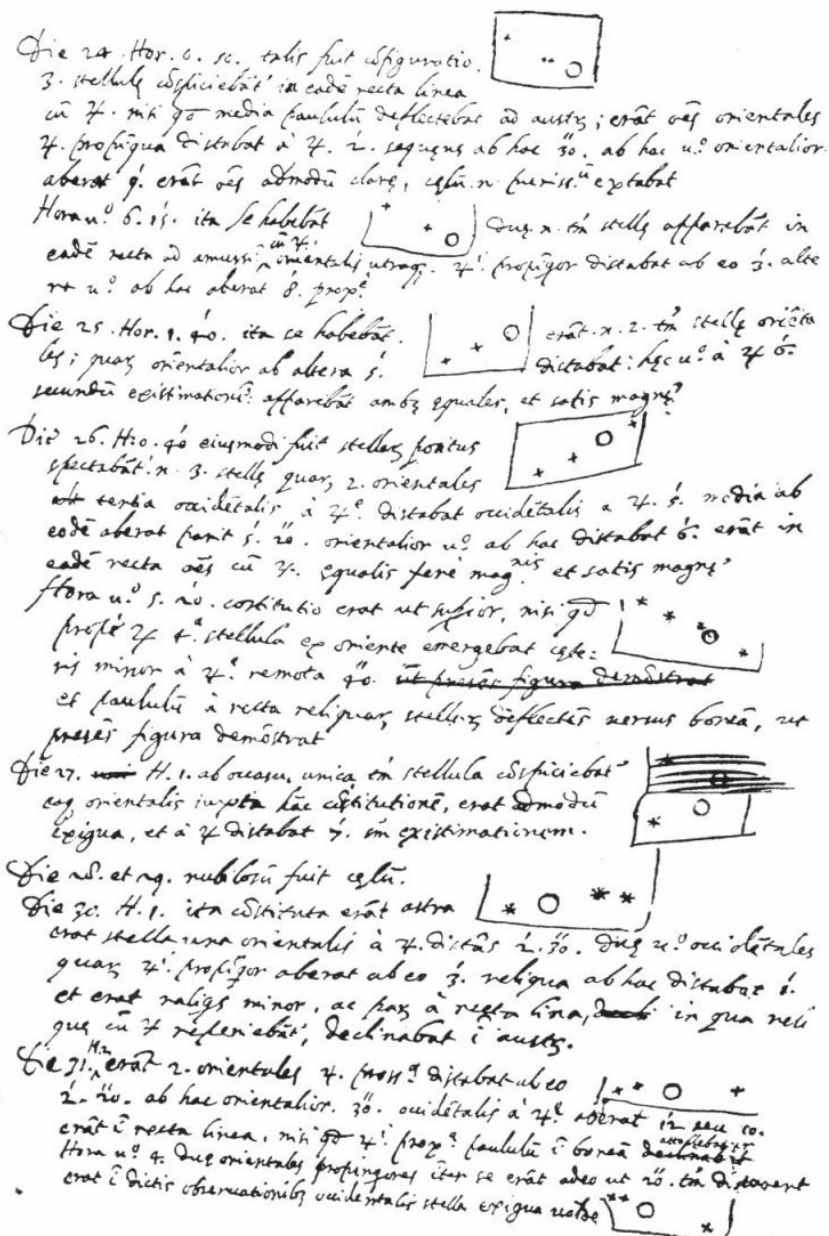 Die 24. Hor. 6. sc. talis fuit cōfiguratio.
3. stellulę cōspiciebāt' in eadē recta linea
cū ♃. nisi qđ media paululū deflectebat ad austrꝫ; erāt oēs orientales
♃. propīqua distabat à ♃. 2'. sequens ab hac 30''. ab hac u.º orientalior
aberat 9'. erāt oēs admodū clarę, cęlū .n. puriss.ū extabat
Hora u.º 6. 15. ita se habebāt duę .n. tm̄ stellę apparebāt in
eadē recta ad amussī cū ♃. orientalis utraqꝫ. ♃.' propīqor distabat ab eo 3'. alte
ra u.º ab hac aberat 8'. propº
Die 25. Hor. 1. 40. ita se habebāt. erāt .n. 2. tm̄ stellę oriēta
les; quaꝝ orientalior ab altera 5'. distabat: hęc u.º à ♃ 6'.
secundū existimationē. apparebāt ambę equales, et satis magnę
Die 26. H: 0. 40 eiusmodi fuit stellaꝝ positus
spectabāt' .n. 3. stellę quaꝝ 2. orientales
tertia occidētalis à ♃.e distabat occidētalis a ♃. 5'. media ab
eodē aberat parit 5'. 20''. orientalior u.º ab hac distabat 6'. erāt in
eadē recta oēs cū ♃. equalis ferè magnis et satis magnę
Hora u.º 5. 20. cōstitutio erat ut supior, nisi qđ
propè ♃ 4.a stellula ex oriente emergebat cęte:
ris minor à ♃.e remota 40''. ut presēs figura demōstrat
et paululū à recta reliquaꝝ, stellaꝝ deflectēs uersus boreā, ut
presēs figura demōstrat
Die 27. H. 1. ab occasu, unica tm̄ stellula cōspiciebat'
eaqꝫ orientalis iuxta hāc cōstitutionē, erat admodū
exigua, et à ♃ distabat 7'. sm̄ existimationem.
Die 28. et 29. nubilosū fuit cęlū.
Die 30. H. 1. ita cōstituta erāt astra
erat stella una orientalis à ♃. distās 2'. 30''. duę u.º occidētales
quaꝝ ♃.' propīqor aberat ab eo 3'. reliqua ab hac distabat 1'.
et erat reliqs minor, ac paꝝ à recta linea, in qua reli
quę cū ♃ reperiebāt', declinabat ī austrꝫ.
Die 31. H. 2 erāt 2. orientales ♃. prossª distabat ab eo
2'. 20''. ab hac orientalior. 30''. occidētalis à ♃.e aberat 12 seu 10.
erāt ī recta linea, nisi qđ ♃.' propª paululū ī boreā attollebat'
Hora u.º 4. duę orientales propinqores īter se erāt adeo ut 20''. tm̄ distarent
erat ī dictis obseruationibꝫ occidentalis stella exigua ualde